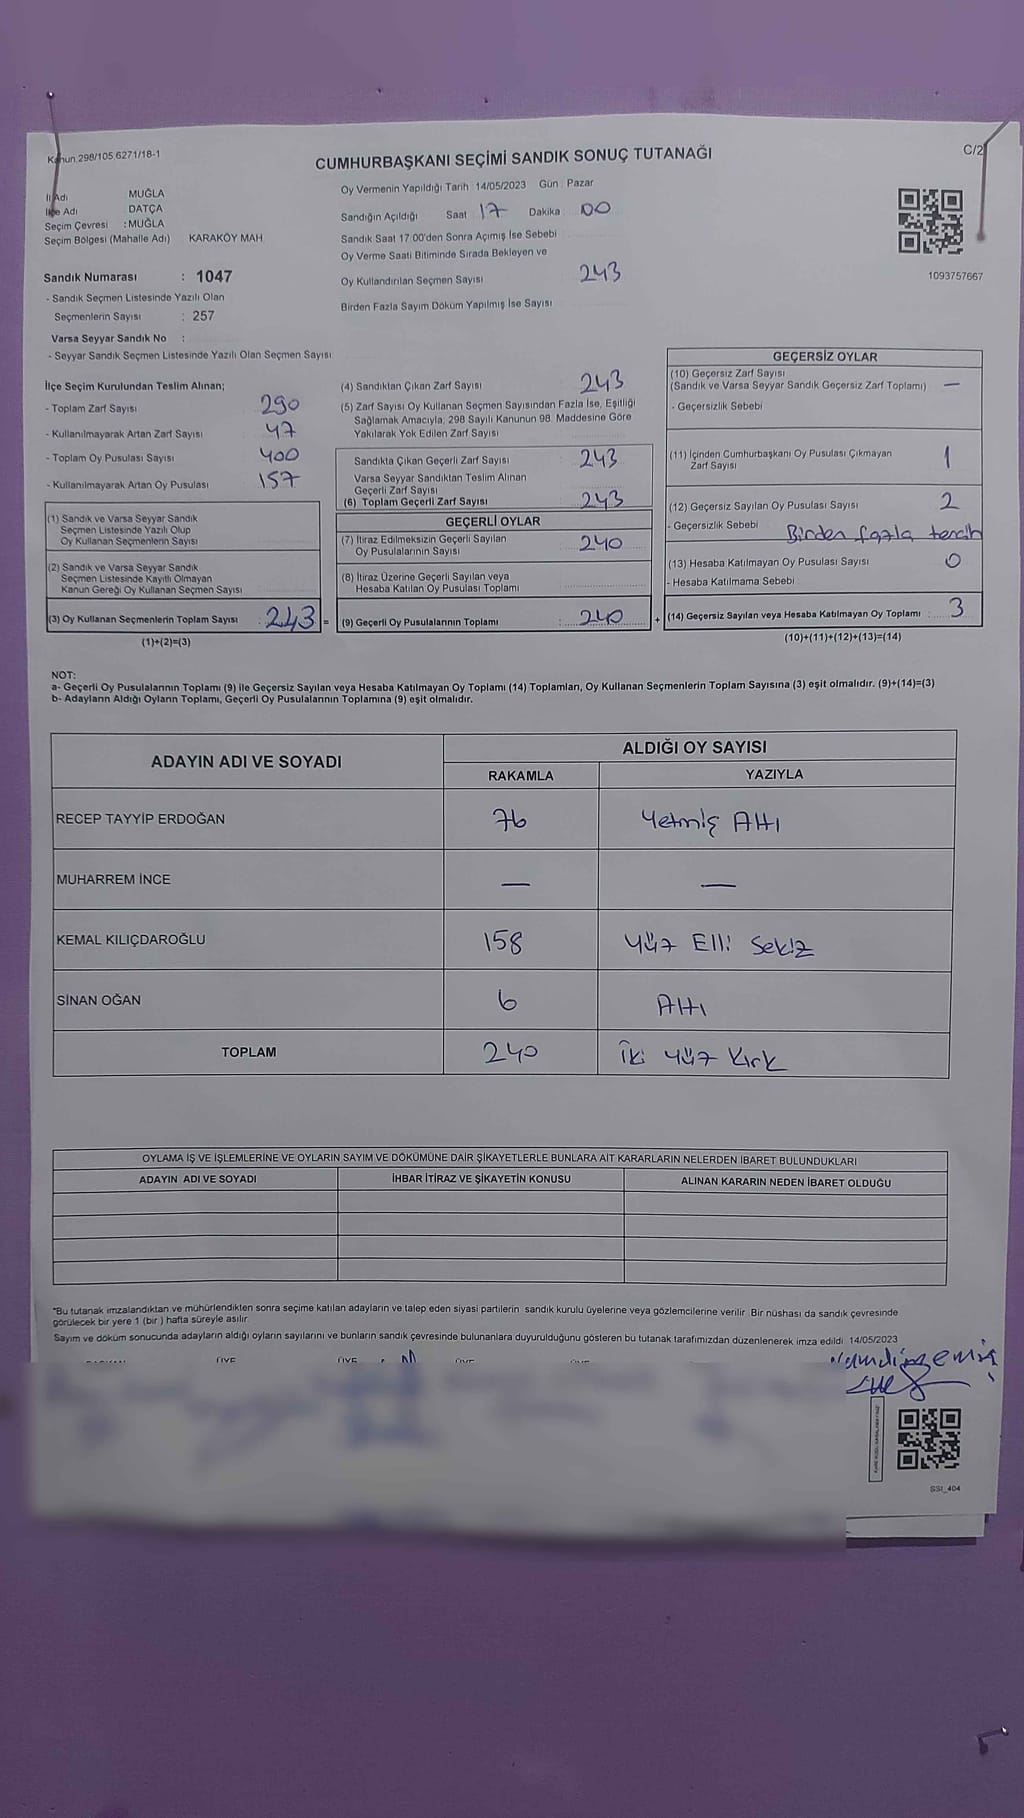 Kanun 298/105 6271/18-1
CUMHURBAŞKANI SEÇİMİ SANDIK SONUÇ TUTANAĞI
C/2
İl Adı MUĞLA
İlçe Adı DATÇA
Seçim Çevresi : MUĞLA
Seçim Bölgesi (Mahalle Adı) KARAKÖY MAH
Sandık Numarası : 1047
- Sandık Seçmen Listesinde Yazılı Olan
Seçmenlerin Sayısı : 257
Varsa Seyyar Sandık No :
- Seyyar Sandık Seçmen Listesinde Yazılı Olan Seçmen Sayısı
Oy Vermenin Yapıldığı Tarih 14/05/2023 Gün : Pazar
Sandığın Açıldığı Saat 17 Dakika 00
Sandık Saat 17:00'den Sonra Açımış İse Sebebi
Oy Verme Saati Bitiminde Sırada Bekleyen ve
Oy Kullandırılan Seçmen Sayısı 243
Birden Fazla Sayım Döküm Yapılmış İse Sayısı
1093757667
İlçe Seçim Kurulundan Teslim Alınan;
- Toplam Zarf Sayısı 290
- Kullanılmayarak Artan Zarf Sayısı 47
- Toplam Oy Pusulası Sayısı 400
- Kullanılmayarak Artan Oy Pusulası 157
(1) Sandık ve Varsa Seyyar Sandık
Seçmen Listesinde Yazılı Olup
Oy Kullanan Seçmenlerin Sayısı
(2) Sandık ve Varsa Seyyar Sandık
Seçmen Listesinde Kayıtlı Olmayan
Kanun Gereği Oy Kullanan Seçmen Sayısı
(3) Oy Kullanan Seçmenlerin Toplam Sayısı : 243 =
(1)+(2)=(3)
(4) Sandıktan Çıkan Zarf Sayısı 243
(5) Zarf Sayısı Oy Kullanan Seçmen Sayısından Fazla İse, Eşitliği
Sağlamak Amacıyla; 298 Sayılı Kanunun 98. Maddesine Göre
Yakılarak Yok Edilen Zarf Sayısı
Sandıkta Çıkan Geçerli Zarf Sayısı 243
Varsa Seyyar Sandıktan Teslim Alınan
Geçerli Zarf Sayısı
(6) Toplam Geçerli Zarf Sayısı 243
GEÇERLİ OYLAR
(7) İtiraz Edilmeksizin Geçerli Sayılan
Oy Pusulalarının Sayısı 240
(8) İtiraz Üzerine Geçerli Sayılan veya
Hesaba Katılan Oy Pusulası Toplamı
(9) Geçerli Oy Pusulalarının Toplamı : 240 +
GEÇERSİZ OYLAR
(10) Geçersiz Zarf Sayısı
(Sandık ve Varsa Seyyar Sandık Geçersiz Zarf Toplamı) —
- Geçersizlik Sebebi
(11) İçinden Cumhurbaşkanı Oy Pusulası Çıkmayan
Zarf Sayısı 1
(12) Geçersiz Sayılan Oy Pusulası Sayısı 2
- Geçersizlik Sebebi Birden fazla tercih
(13) Hesaba Katılmayan Oy Pusulası Sayısı 0
- Hesaba Katılmama Sebebi
(14) Geçersiz Sayılan veya Hesaba Katılmayan Oy Toplamı : 3
(10)+(11)+(12)+(13)=(14)
NOT:
a- Geçerli Oy Pusulalarının Toplamı (9) ile Geçersiz Sayılan veya Hesaba Katılmayan Oy Toplamı (14) Toplamları, Oy Kullanan Seçmenlerin Toplam Sayısına (3) eşit olmalıdır. (9)+(14)=(3)
b- Adayların Aldığı Oyların Toplamı, Geçerli Oy Pusulalarının Toplamına (9) eşit olmalıdır.
ADAYIN ADI VE SOYADI ALDIĞI OY SAYISI
RAKAMLA YAZIYLA
RECEP TAYYİP ERDOĞAN 76 Yetmiş Altı
MUHARREM İNCE — —
KEMAL KILIÇDAROĞLU 158 Yüz Elli Sekiz
SİNAN OĞAN 6 Altı
TOPLAM 240 İki Yüz Kırk
OYLAMA İŞ VE İŞLEMLERİNE VE OYLARIN SAYIM VE DÖKÜMÜNE DAİR ŞİKAYETLERLE BUNLARA AİT KARARLARIN NELERDEN İBARET BULUNDUKLARI
ADAYIN ADI VE SOYADI İHBAR İTİRAZ VE ŞİKAYETİN KONUSU ALINAN KARARIN NEDEN İBARET OLDUĞU
"Bu tutanak imzalandıktan ve mühürlendikten sonra seçime katılan adayların ve talep eden siyasi partilerin sandık kurulu üyelerine veya gözlemcilerine verilir. Bir nüshası da sandık çevresinde
görülecek bir yere 1 (bir ) hafta süreyle asılır.
Sayım ve döküm sonucunda adayların aldığı oyların sayılarını ve bunların sandık çevresinde bulunanlara duyurulduğunu gösteren bu tutanak tarafımızdan düzenlenerek imza edildi. 14/05/2023
SSI_404